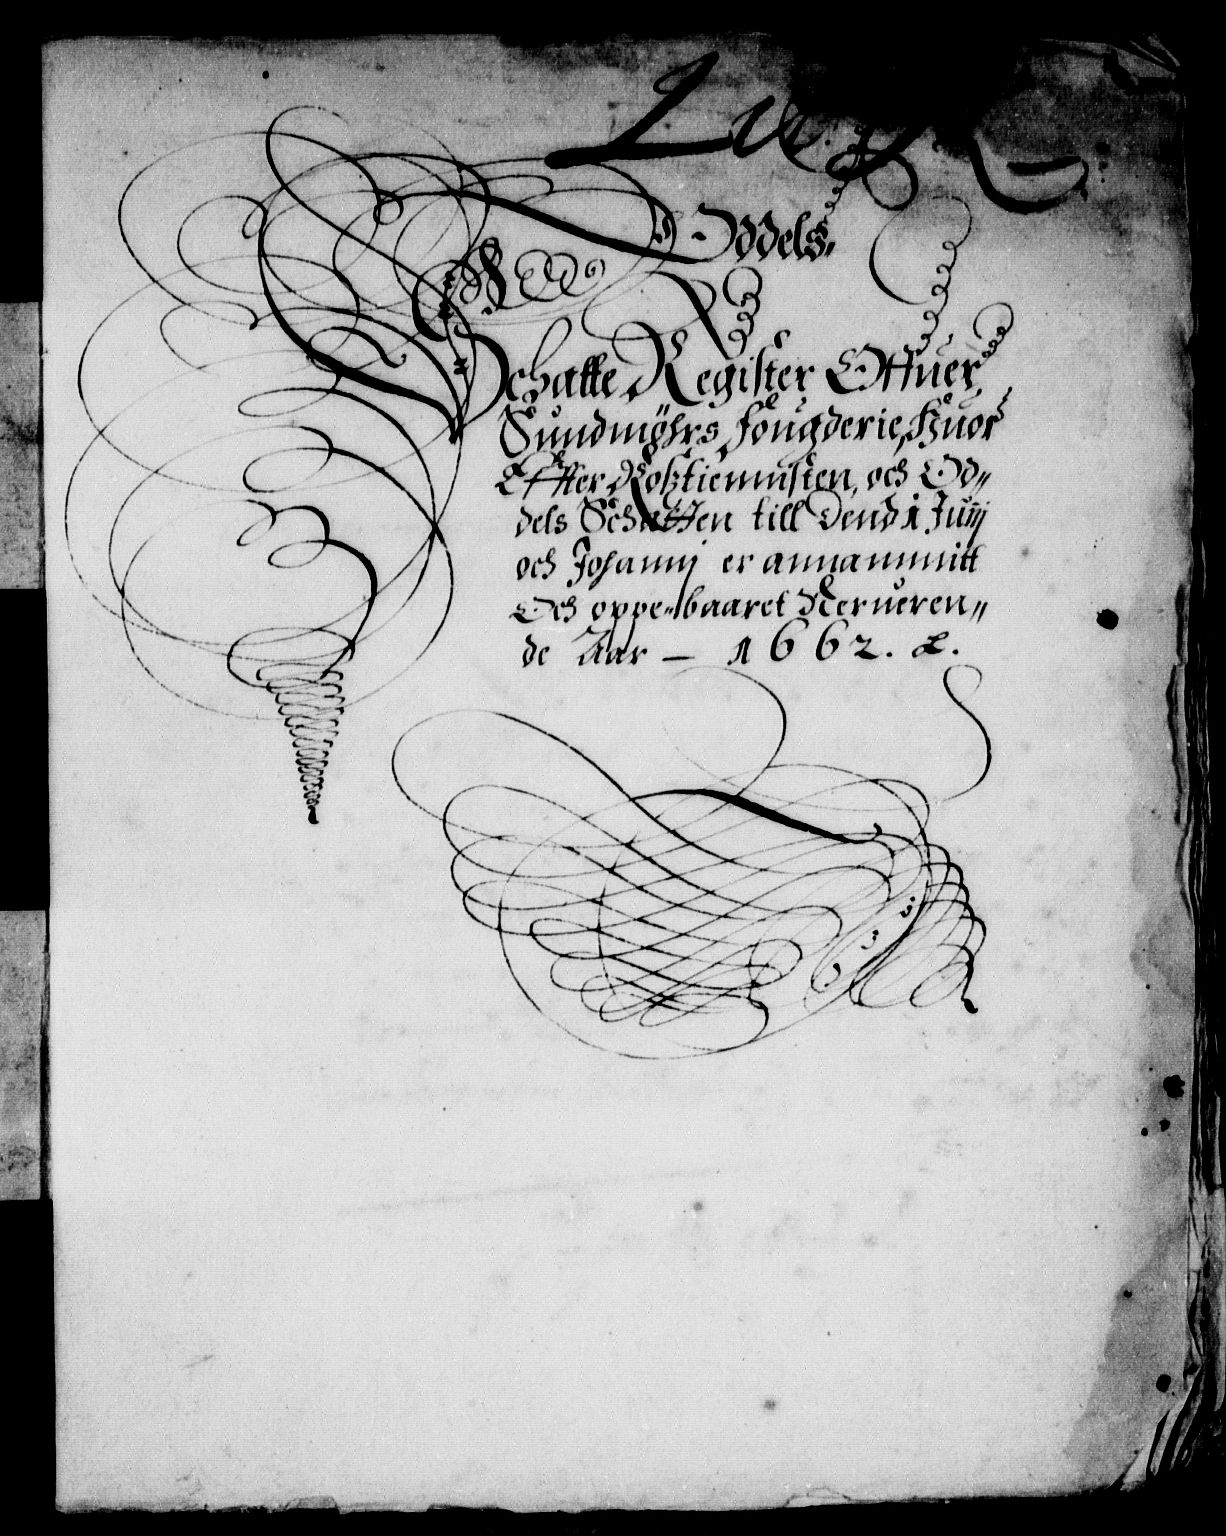 Oddels
Schatte Register Offuer
Sundmøhrs fougderie, Huor
Effter Rosztiennisten, och Od„
dels Schatten till Dend 1 Junij
och Johannj er annammitt
Och oppe„baaret Nerueren„
de Aar — 1662. &.